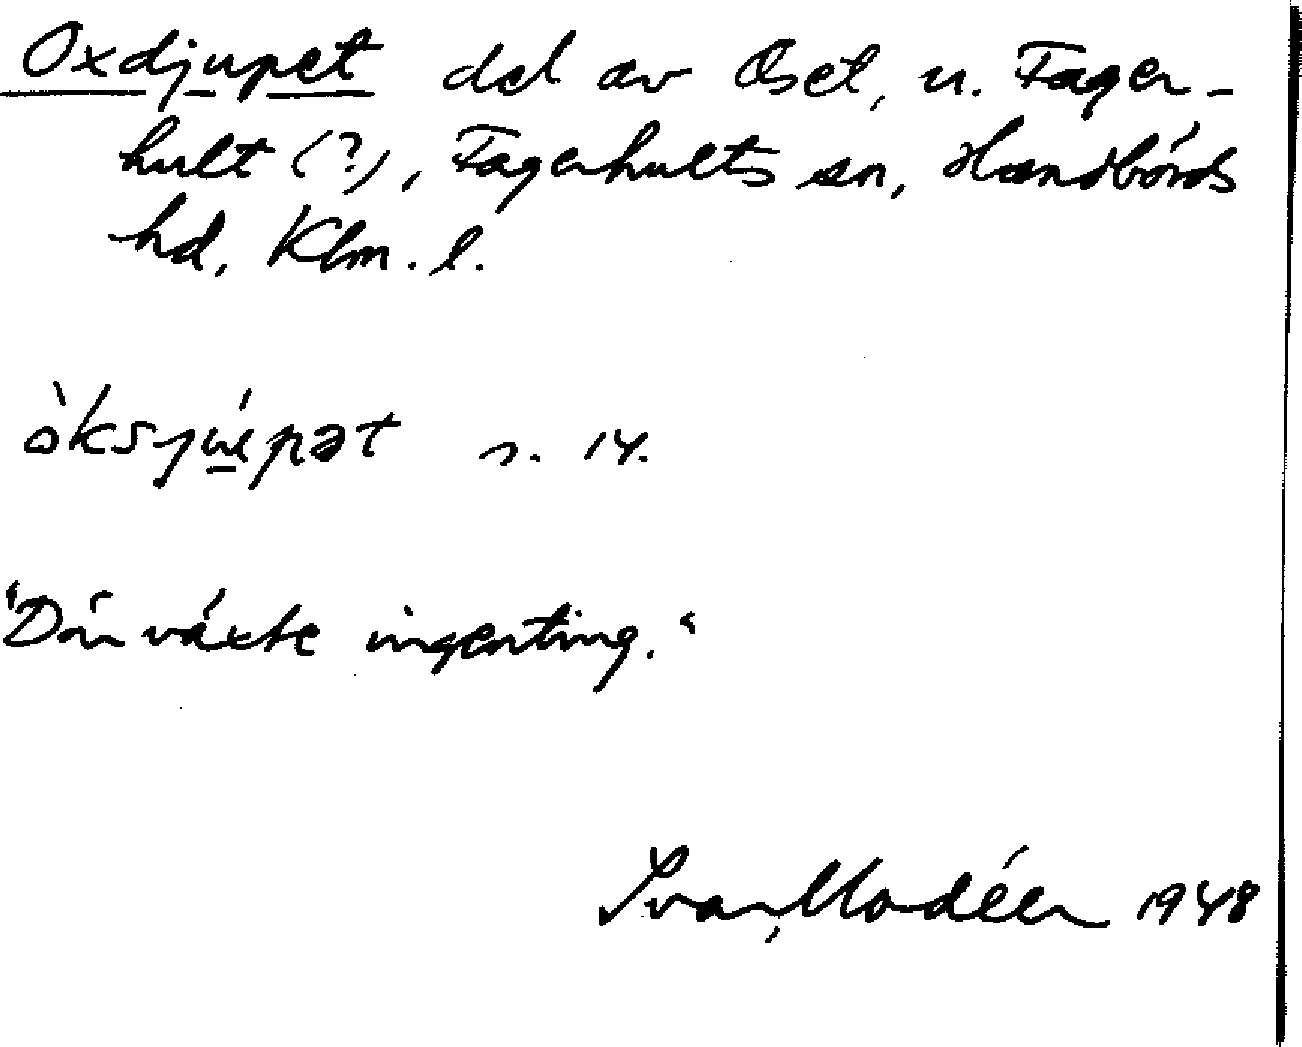 Oxdjupet del av Öset, u. Fager-
hult (?), Fagerhults sn, Handbörds
hd, Klm. l.
òksjúpət s. 14.
"Där växte ingenting."
Ivar Modéer 1948